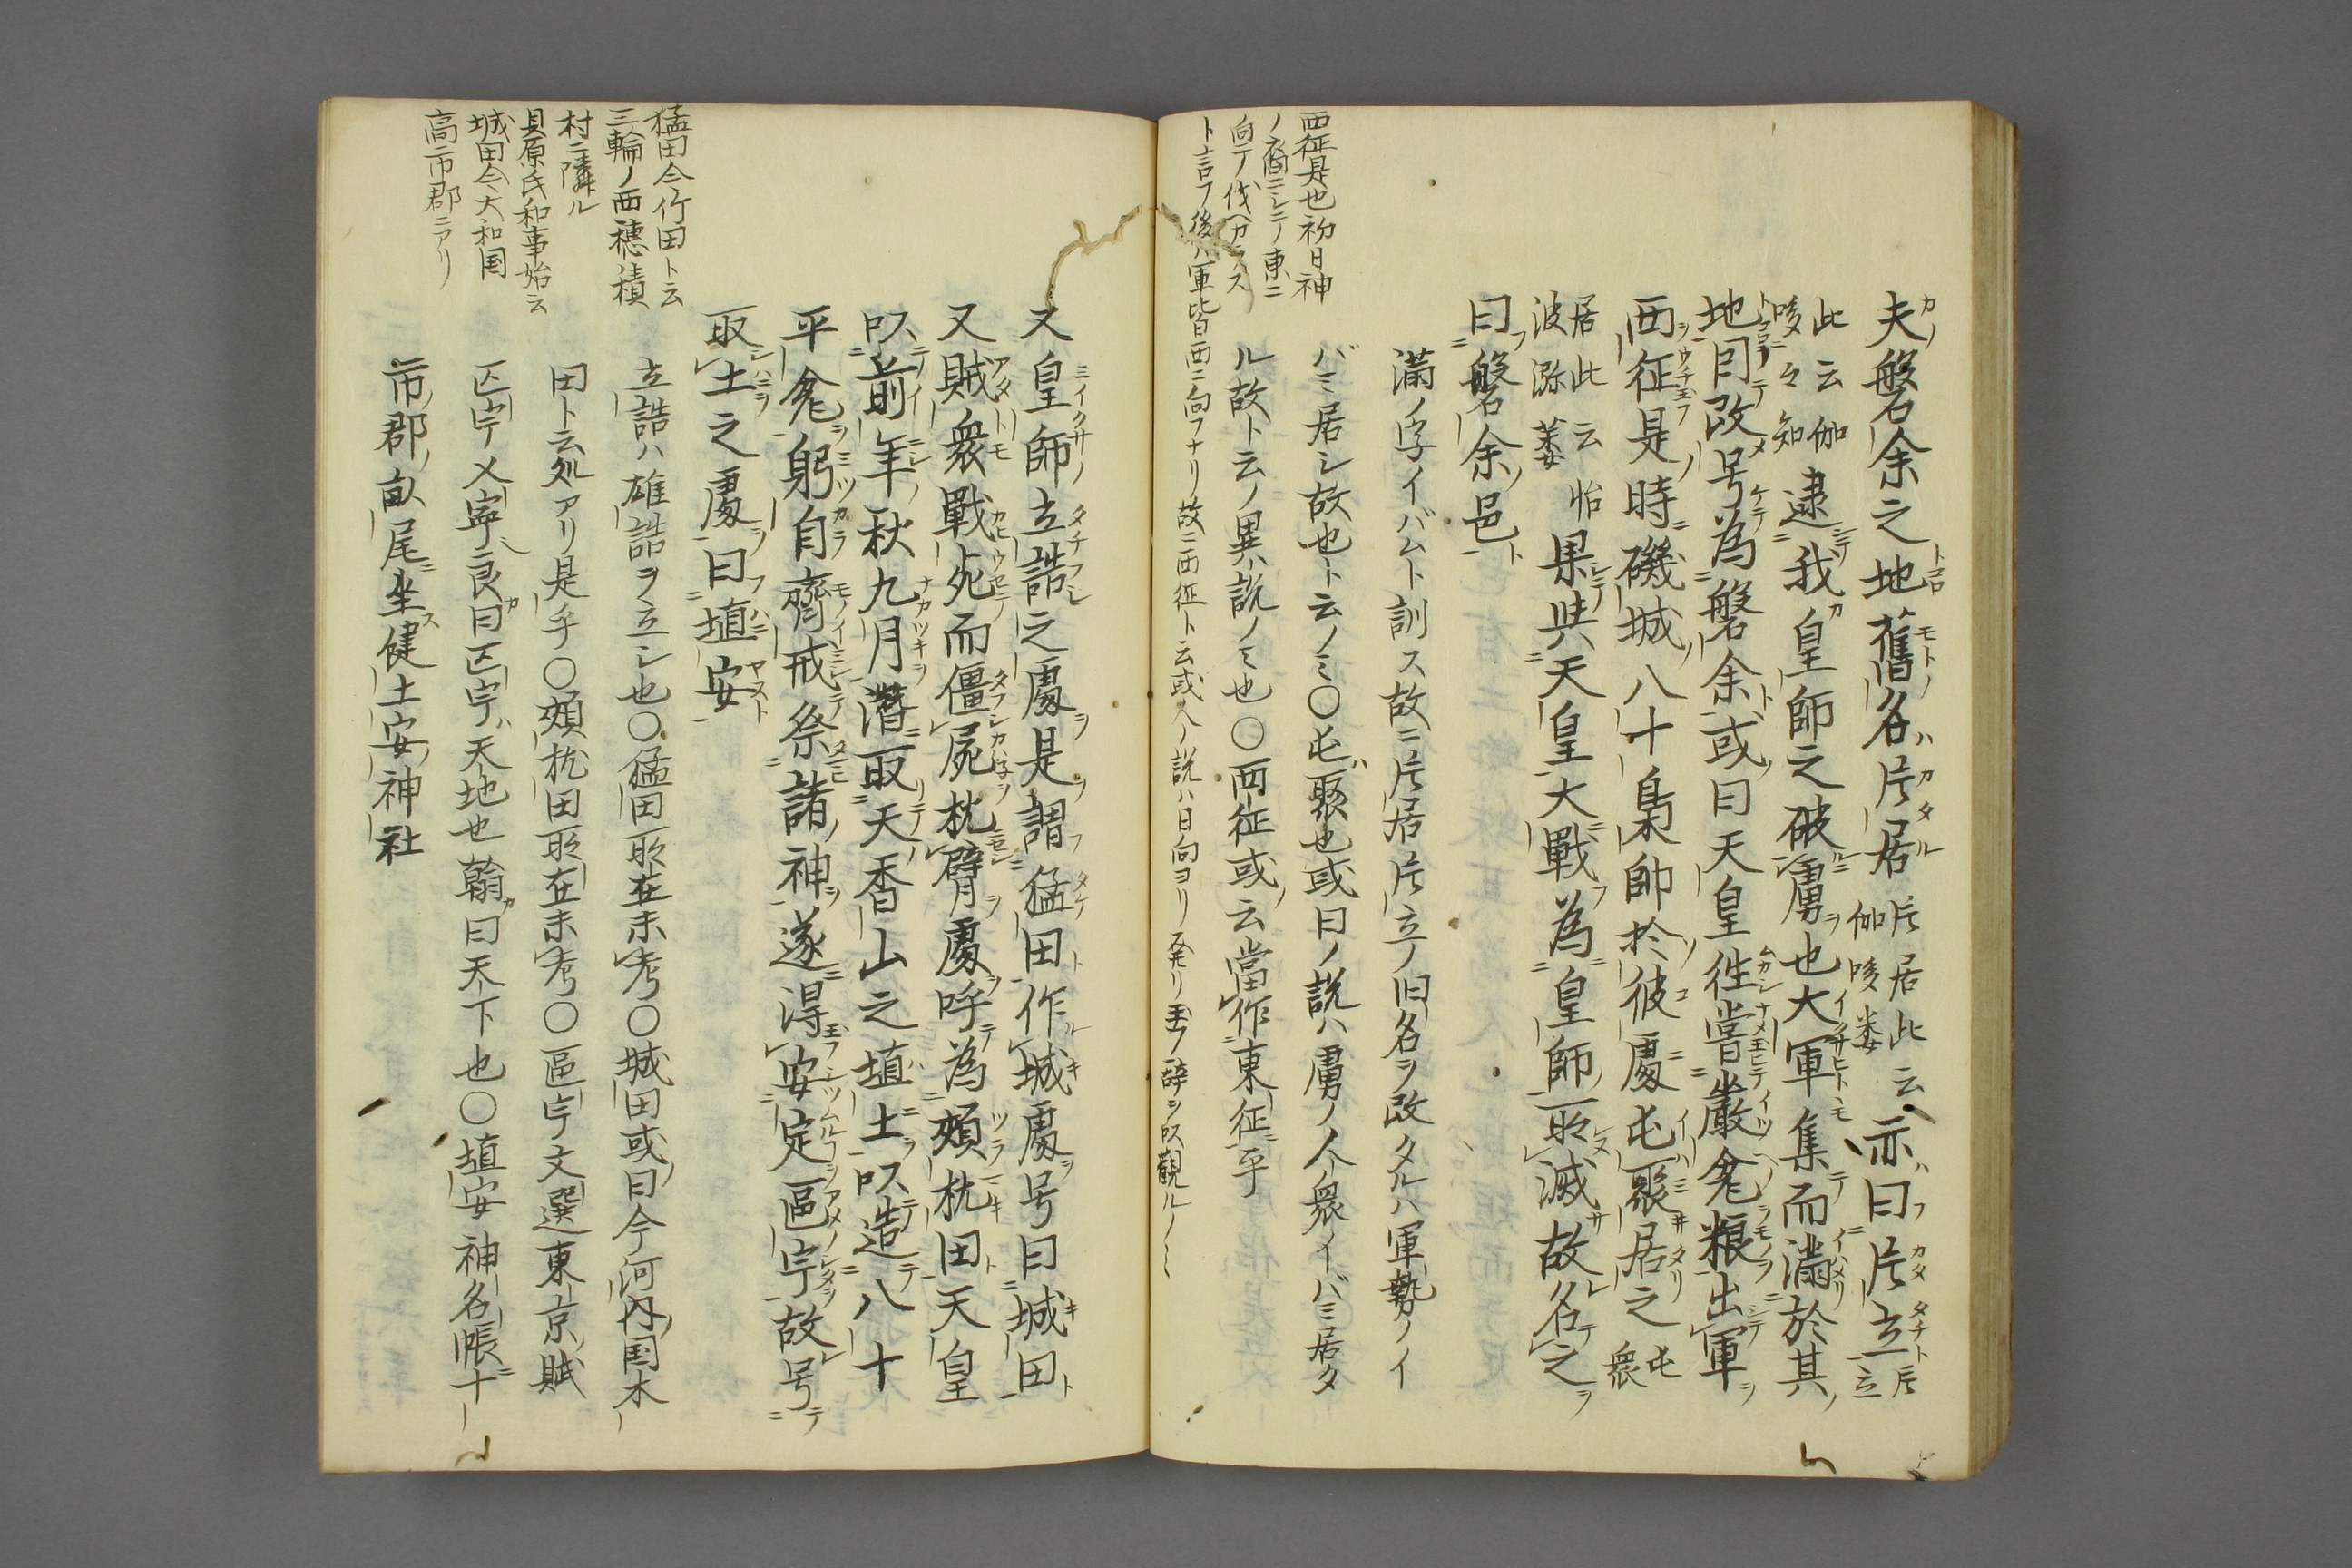 夫磐余之地舊名片居片居此云伽哆婁亦曰片立片立
此云伽哆々知逮我皇師之破虜也大軍集而満於其
地因改号為磐余或曰天皇往嘗嚴瓮粮出軍
西征是時磯城八十梟帥於彼處屯聚居之屯聚
居此云怡波瀰萎果與天皇大戰為皇師所滅故名之
曰磐余邑
満ノ字イバムト訓ス故ニ片居片立ノ旧名ヲ改タルハ軍勢ノイ
バミ居シ故也ト云ノミ〇屯聚也或曰ノ説ハ虜ノ人衆イバミ居タ
ル故ト云ノ異説ノミ也〇西征或云當作東征乎
西征是也初日神
向テノ伐ヘカラス
ト言フ後ハ軍皆西ニ向フナリ故ニ西征ト云或人ノ説ハ日向ヨリ発リ玉フ辞ヲ以觀ルノミ
又皇師立誥之處是謂猛田作城處号曰城田
又賊衆戰死而僵屍枕臂處呼為頰枕田天皇
以前年秋九月潜取天香山之埴土以造八十
平瓮躬自齋戒祭諸神遂得安定區宇故号
取土之處曰埴安
立誥ハ雄誥ヲ立シ也〇猛田所在未考〇城田或曰今河内国木
田ト云処アリ是乎〇頰枕田所在未考〇區宇文選東京賦
区宇乂寧良曰区宇ハ天地也翰曰天下也〇埴安神名帳十
市郡畝尾坐健土安神社
猛田今竹田ト云
三輪ノ西穗積
村ニ隣ル
貝原氏和事始云
城田今大和国
高市郡ニアリ